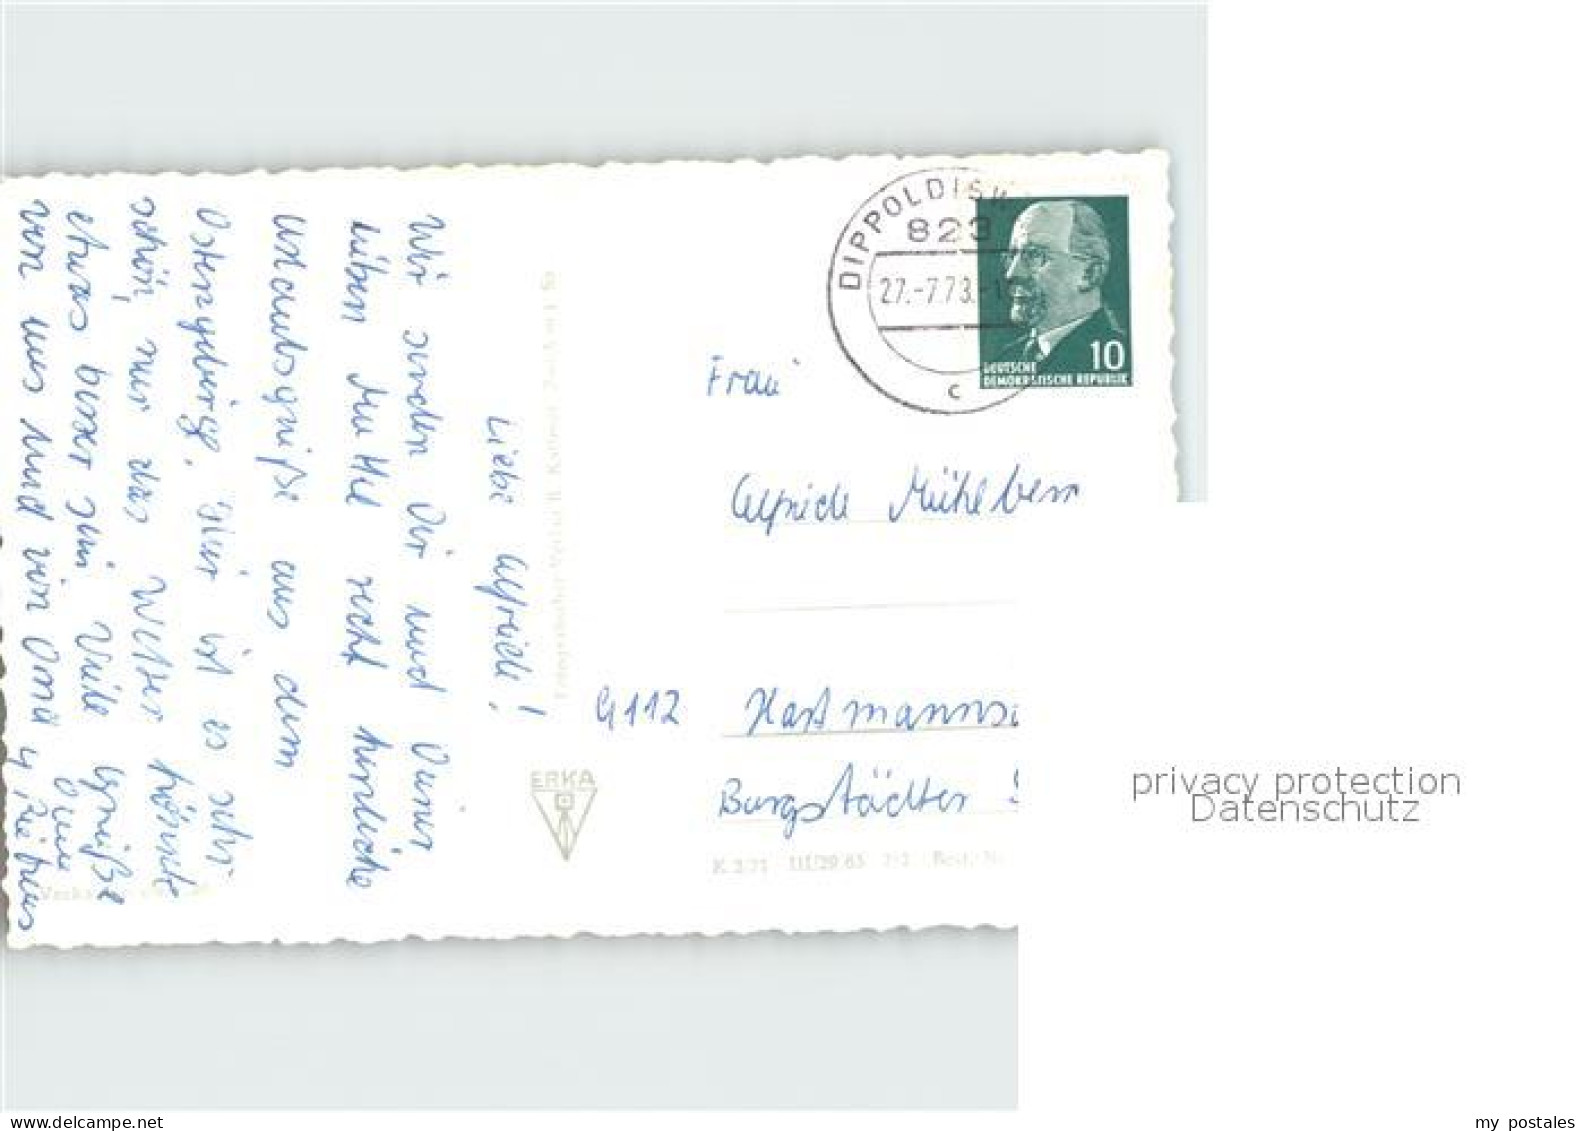 Liebe Elfriede!
Wir senden Dir und Deiner
lieben Mutti recht herzliche
Urlaubsgrüße aus dem
Osterzgebirge. Hier ist es sehr
schön, nur das Wetter könnte
etwas besser sein. Viele Grüße
von uns und von Oma u.
DIPPOLDISW
823
27.-7.73.-1
c
10
DEUTSCHE
DEMOKRATISCHE REPUBLIK
Frau
Elfriede
9112 Hartmanns
Burgstädter S
ERKA
K 2/71 III/29 65
privacy protection
Datenschutz
my postales